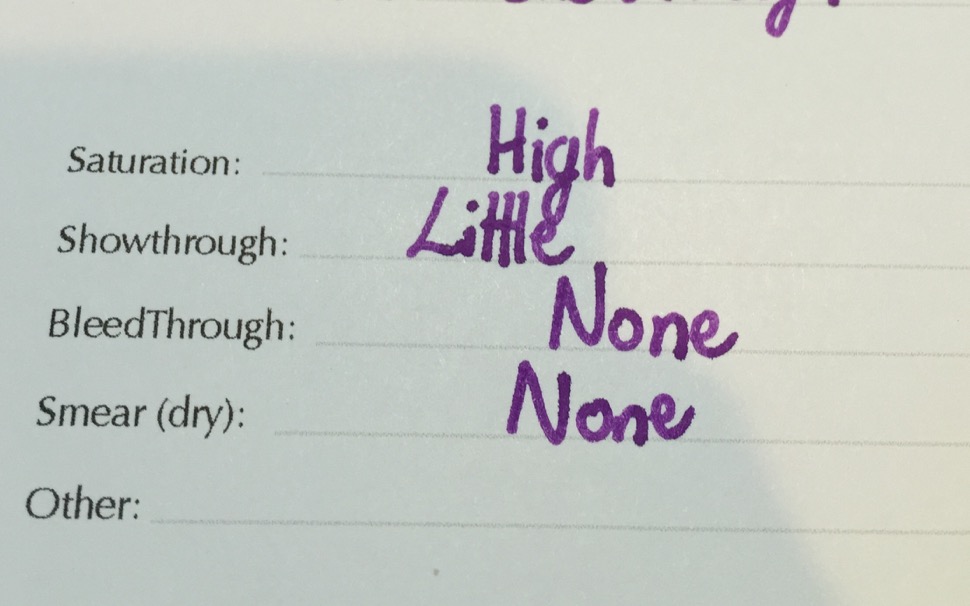 Saturation: High
Showthrough: Little
BleedThrough: None
Smear (dry): None
Other: